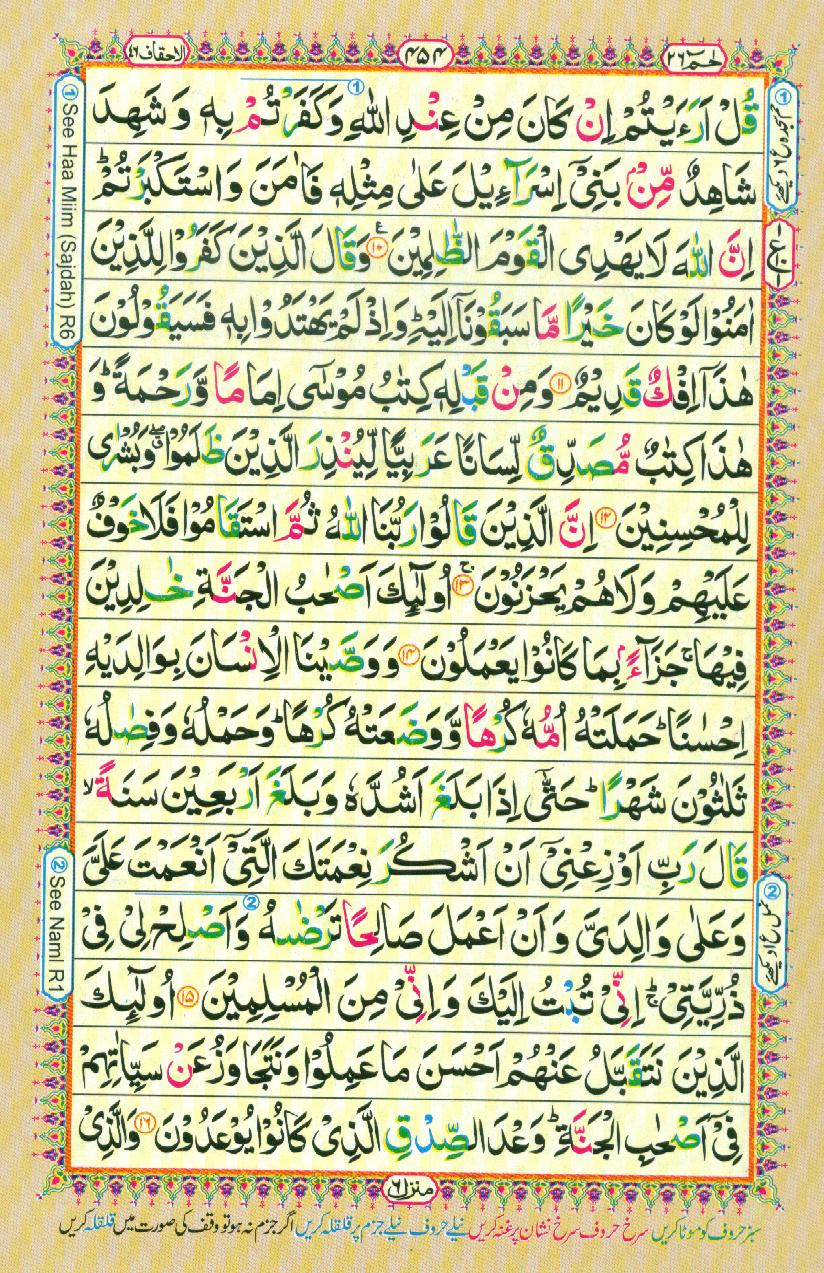 حٰمٓ ٢٦
٤٥٤
الاحقاف ٤٦
قُلْ اَرَءَیْتُمْ اِنْ كَانَ مِنْ عِنْدِ اللّٰهِ وَ كَفَرْتُمْ بِهٖ وَ شَهِدَ
شَاهِدٌ مِّنْۢ بَنِیْۤ اِسْرَآءِیْلَ عَلٰی مِثْلِهٖ فَاٰمَنَ وَ اسْتَكْبَرْتُمْ ؕ
اِنَّ اللّٰهَ لَا یَهْدِی الْقَوْمَ الظّٰلِمِیْنَ ۝۱۰ وَ قَالَ الَّذِیْنَ كَفَرُوْا لِلَّذِیْنَ
اٰمَنُوْا لَوْ كَانَ خَیْرًا مَّا سَبَقُوْنَاۤ اِلَیْهِ ؕ وَ اِذْ لَمْ یَهْتَدُوْا بِهٖ فَسَیَقُوْلُوْنَ
هٰذَاۤ اِفْكٌ قَدِیْمٌ ۝۱۱ وَ مِنْ قَبْلِهٖ كِتٰبُ مُوْسٰۤی اِمَامًا وَّ رَحْمَةً ؕ وَ
هٰذَا كِتٰبٌ مُّصَدِّقٌ لِّسَانًا عَرَبِیًّا لِّیُنْذِرَ الَّذِیْنَ ظَلَمُوْا ۖۗ وَ بُشْرٰی
لِلْمُحْسِنِیْنَ ۝۱۲ اِنَّ الَّذِیْنَ قَالُوْا رَبُّنَا اللّٰهُ ثُمَّ اسْتَقَامُوْا فَلَا خَوْفٌ
عَلَیْهِمْ وَ لَا هُمْ یَحْزَنُوْنَ ۝۱۳ اُولٰٓىِٕكَ اَصْحٰبُ الْجَنَّةِ خٰلِدِیْنَ
فِیْهَا ۚ جَزَآءًۢ بِمَا كَانُوْا یَعْمَلُوْنَ ۝۱۴ وَ وَصَّیْنَا الْاِنْسَانَ بِوَالِدَیْهِ
اِحْسٰنًا ؕ حَمَلَتْهُ اُمُّهٗ كُرْهًا وَّ وَضَعَتْهُ كُرْهًا ؕ وَ حَمْلُهٗ وَ فِصٰلُهٗ
ثَلٰثُوْنَ شَهْرًا ؕ حَتّٰۤی اِذَا بَلَغَ اَشُدَّهٗ وَ بَلَغَ اَرْبَعِیْنَ سَنَةً ۙ
قَالَ رَبِّ اَوْزِعْنِیْۤ اَنْ اَشْكُرَ نِعْمَتَكَ الَّتِیْۤ اَنْعَمْتَ عَلَیَّ
وَ عَلٰی وَالِدَیَّ وَ اَنْ اَعْمَلَ صَالِحًا تَرْضٰىهُ وَ اَصْلِحْ لِیْ فِیْ
ذُرِّیَّتِیْ ؕۚ اِنِّیْ تُبْتُ اِلَیْكَ وَ اِنِّیْ مِنَ الْمُسْلِمِیْنَ ۝۱۵ اُولٰٓىِٕكَ
الَّذِیْنَ نَتَقَبَّلُ عَنْهُمْ اَحْسَنَ مَا عَمِلُوْا وَ نَتَجَاوَزُ عَنْ سَیِّاٰتِهِمْ
فِیْۤ اَصْحٰبِ الْجَنَّةِ ؕ وَعْدَ الصِّدْقِ الَّذِیْ كَانُوْا یُوْعَدُوْنَ ۝۱۶ وَ الَّذِیْ
① See Haa Miim (Sajdah) R6
② See Naml R1
منزل ٦
سبز حروف کو موٹا کریں سرخ حروف سرخ نشان پر غنہ کریں نیلے حروف نیلے جزم پر قلقلہ کریں اگر جزم نہ ہو تو وقف کی صورت میں قلقلہ کریں